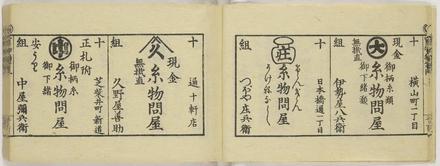 十 横山町一丁目
現金 御柄糸類
大 糸物問屋
無掛直 御下緒類
組 伊勢屋八兵衛
十 日本橋通一丁目
荘 糸物問屋
組 つたや庄兵衛
十 通十軒店
現金
久 糸物問屋
無掛直
組 久野屋善助
十 芝柴井町新道
正札附 御柄糸
糸物問屋
御下緒
安うり
組 中屋彌兵衛